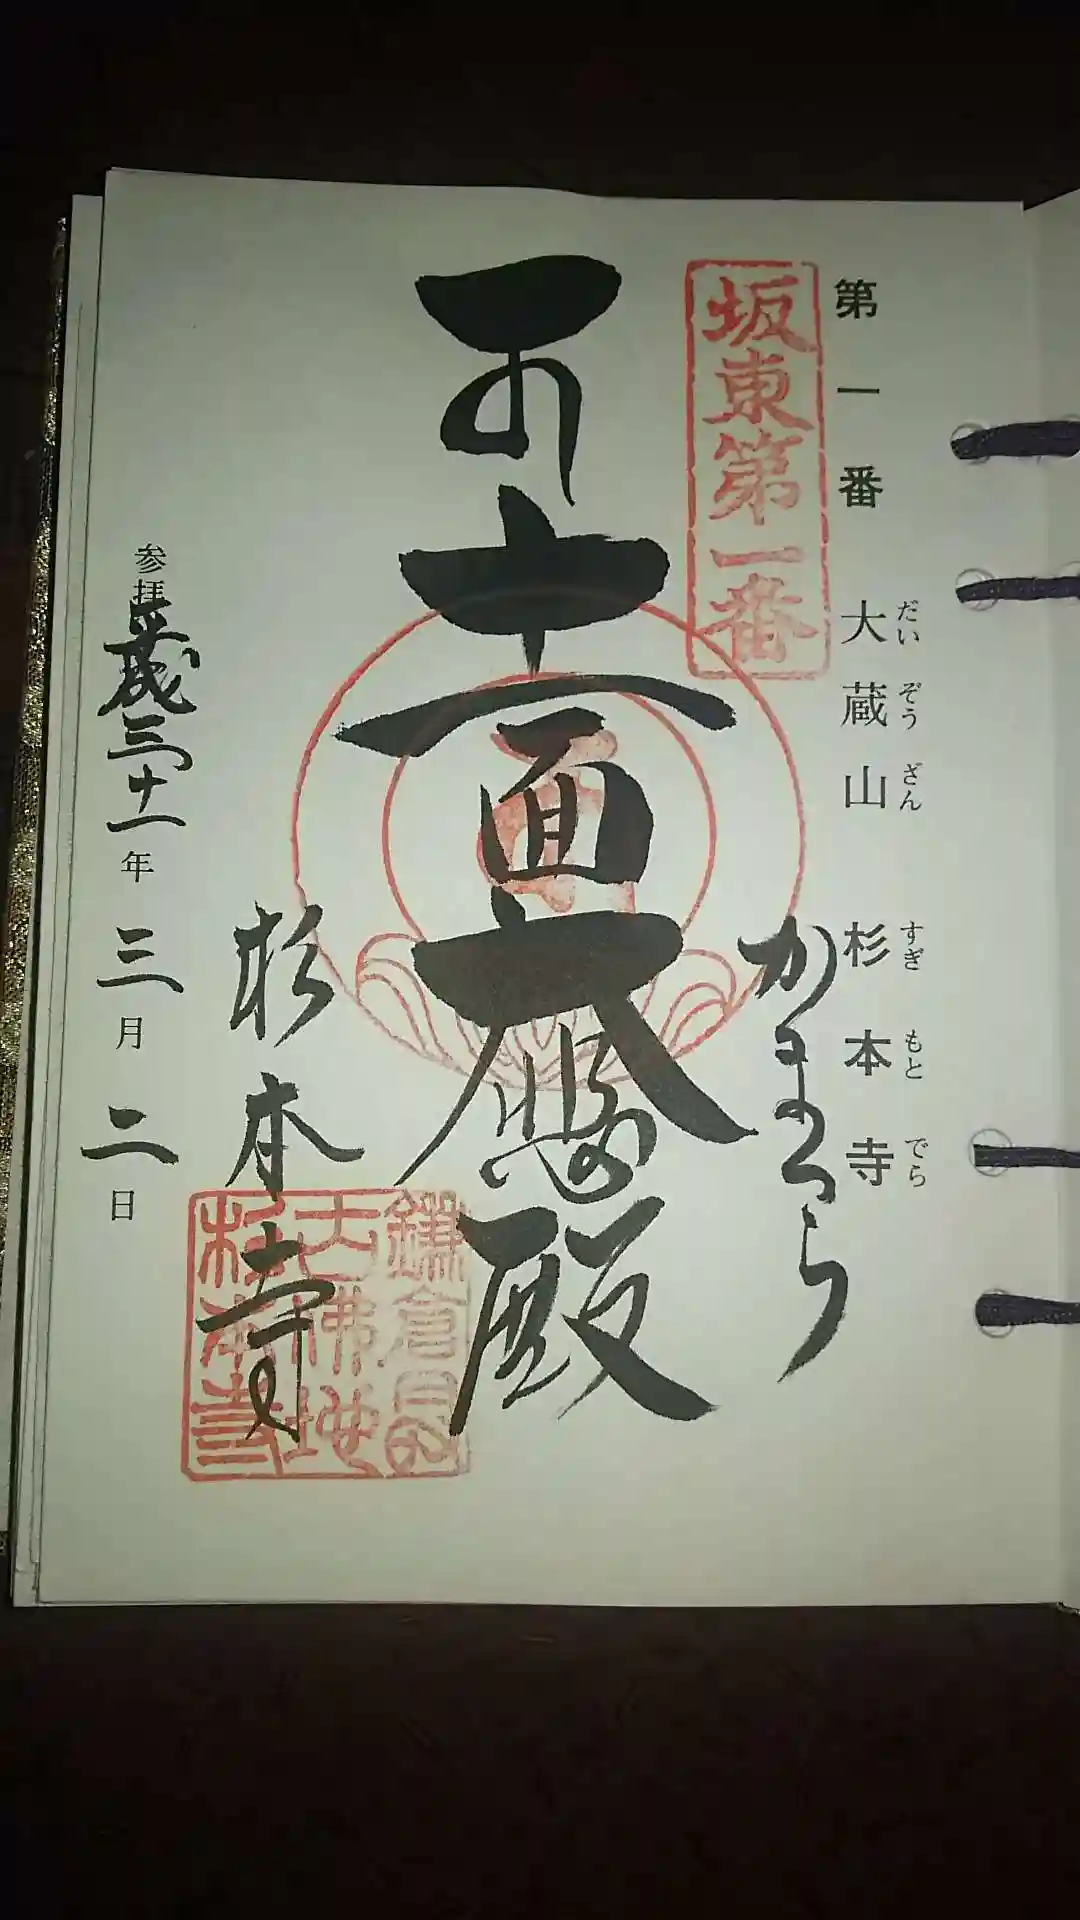 第一番 大蔵山 杉本寺
だいぞうざん すぎもとでら
坂東第一番
かまくら
十一面大悲殿
杉本寺
鎌倉最
古佛地
杉本寺
参拝平成三十一年三月二日